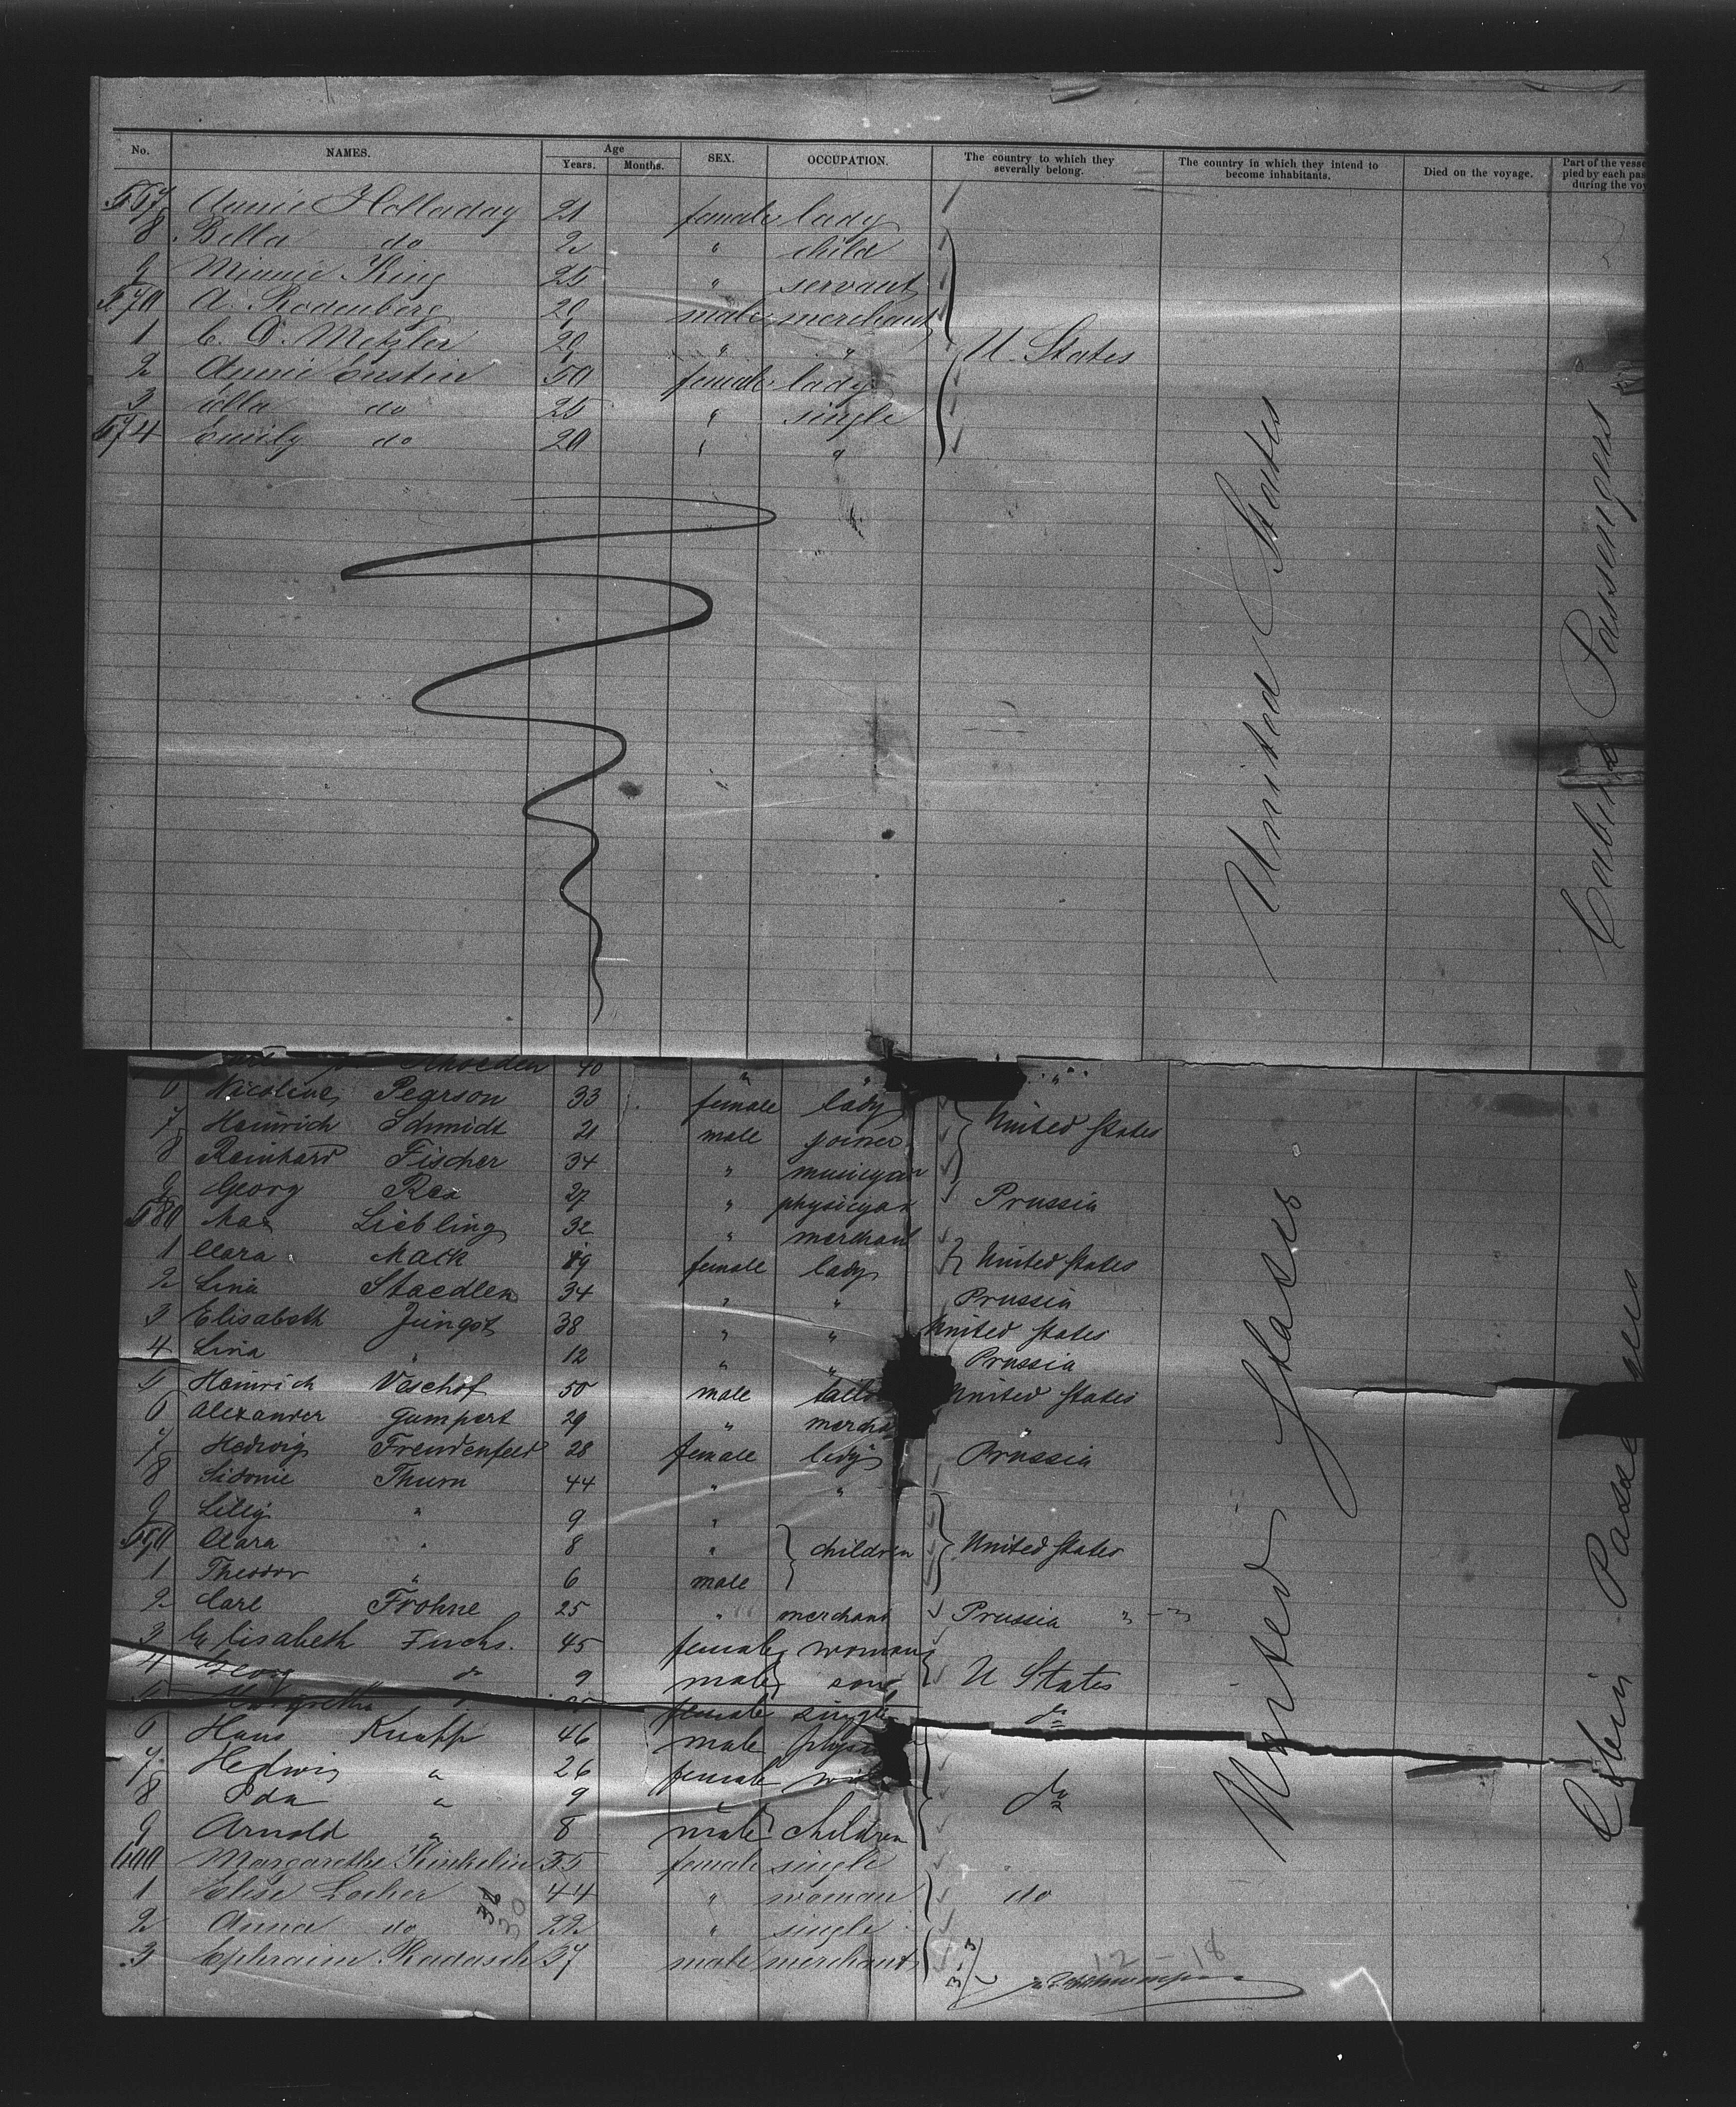 No. NAMES. Age Years. Months. SEX. OCCUPATION. The country to which they severally belong. The country in which they intend to become inhabitants. Died on the voyage. Part of the vesse pied by each pas during the voy
567 Annie Holladay 21 female lady
8 Bella do 2 " child
9 Minnie King 25 " servant
570 A. Rodenberg 20 male merchant
1 C. D. Metzler 20 " " U. States
2 Annie Custin 50 female lady
3 Ella do 25 " single
574 Emily do 20 " "
United States
Cabin Passengers
40 " "
6 Nicoline Pearson 33 female lady
7 Heinrich Schmidt 21 male joiner United States
8 Reinhard Fischer 34 " musicyan
9 Georg Rex 27 " physicyan Prussia
580 Max Liebling 32 " merchant
1 Clara Mack 49 female lady United States
2 Lina Staedlen 34 " " Prussia
3 Elisabeth Jüngst 38 " " United States
4 Lina " 12 " " Prussia
5 Heinrich Veschof 50 male United States
6 Alexander Gumpert 29 " mercha "
7 Hedwig Freudenfeld 28 female lady Prussia
8 Sidonie Thurn 44 " "
9 Lilly " 9 "
590 Clara " 8 " children United States
1 Theodor " 6 male
2 Carl Frohne 25 " merchant Prussia
3 Elisabeth Fuchs. 45 female woman
4 Georg do 9 male son U States
5 Margaretha female single do
6 Hans Knapp 46 male phys
7 Hedwig " 26 female wife
8 Ida " 9 " do
9 Arnold " 8 male children
600 Margarethe Kinkelin 35 female single
1 Elise Locher 44 " woman do
2 Anna do 22 " single
3 Ephraim Kadasch 37 male merchant
30
12-18
United States
Cabin Passengers